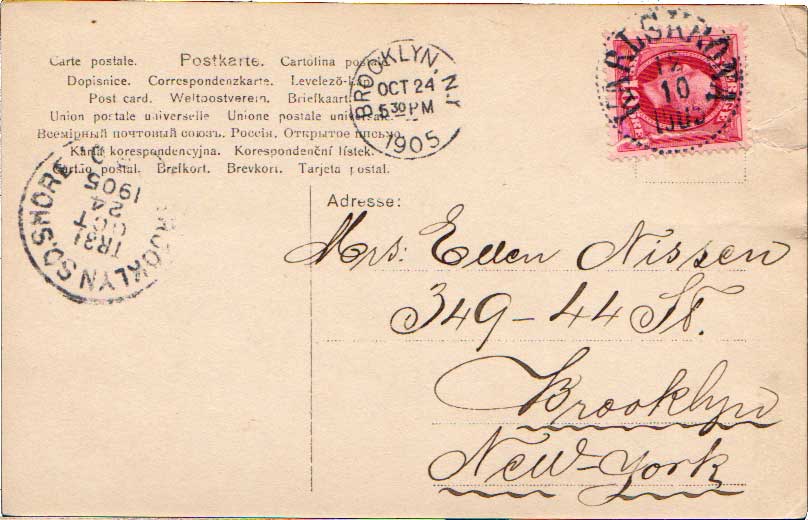 Carte postale. Postkarte. Cartolina postale.
Dopisnice. Correspondenzkarte. Levelező-Lap.
Post card. Weltpostverein. Briefkaart.
Union postale universelle Unione postale universale.
Всемірный почтовый союзъ. Россія. Открытое письмо.
Karta korespondencyjna. Korespondenční lístek.
Cartão postal. Brefkort. Brevkort. Tarjeta postal.
BROOKLYN, N.Y.
OCT 24
5 30 PM
1905
KARLSKRONA
10
BROOKLYN SO. SHORE
OCT
24
1905
Adresse:
Mrs: Ellen Nissen
349-44 St.
Brooklyn
New-York